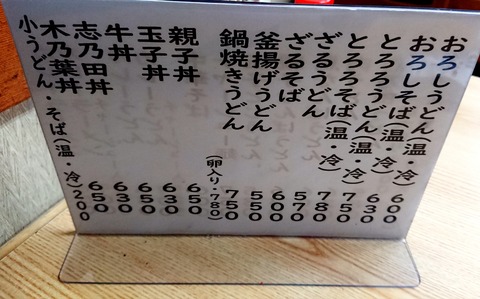 おろしうどん(温・冷)600
おろしそば(温・冷)630
とろろうどん(温・冷)750
とろろそば(温・冷)780
ざるうどん570
ざるそば600
釜揚げうどん550
鍋焼きうどん750
(卵入り・780)
親子丼650
玉子丼630
牛丼650
志乃田丼630
木乃葉丼650
小うどん・そば(温・冷)200